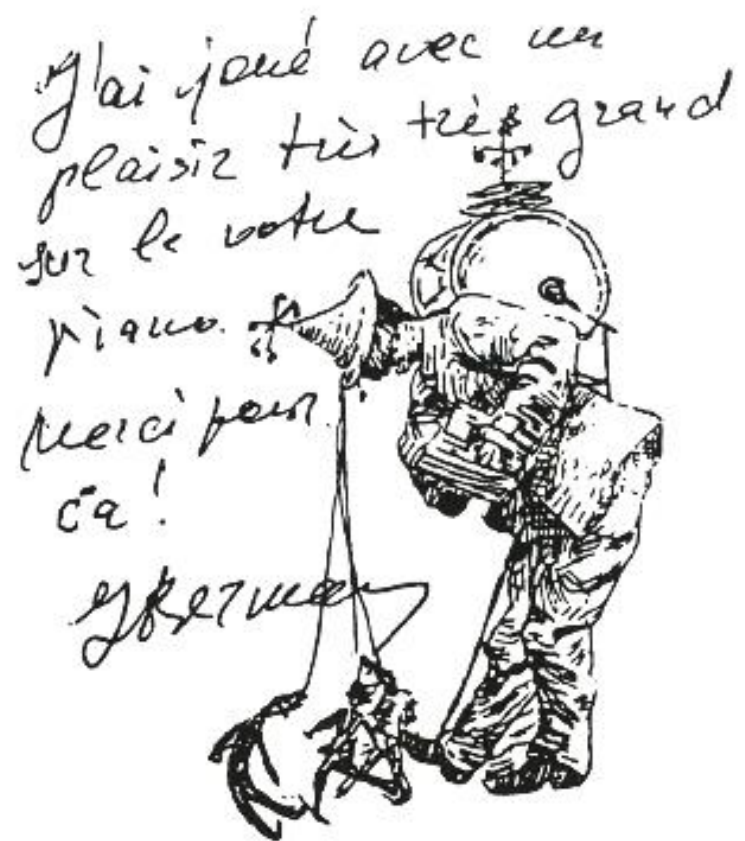 J'ai joué avec un
plaisir très très grand
sur le votre
piano.
merci pour
ça!